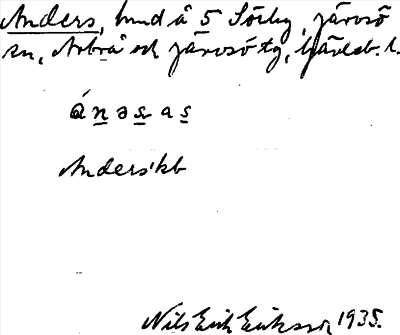 Anders, hmd å 5 Sörby, Järvsö
sn, Arbrå och Järvsö tg, Gävleb. l.
ánəsas
Anders'kb
Nils Erik Eriksson 1935.